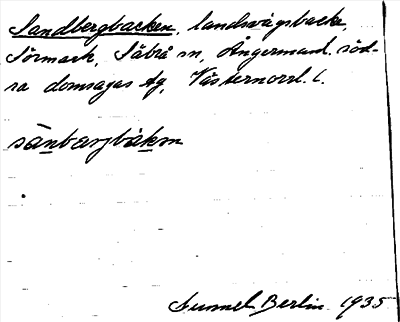 Sandbergbacken, landsvägsbacke,
Sörmark, Säbrå sn, Ångermanl. söd-
ra domsagas tg, Västernorrl. l.
sànbærjbàkan
Gunnel Berlin 1935